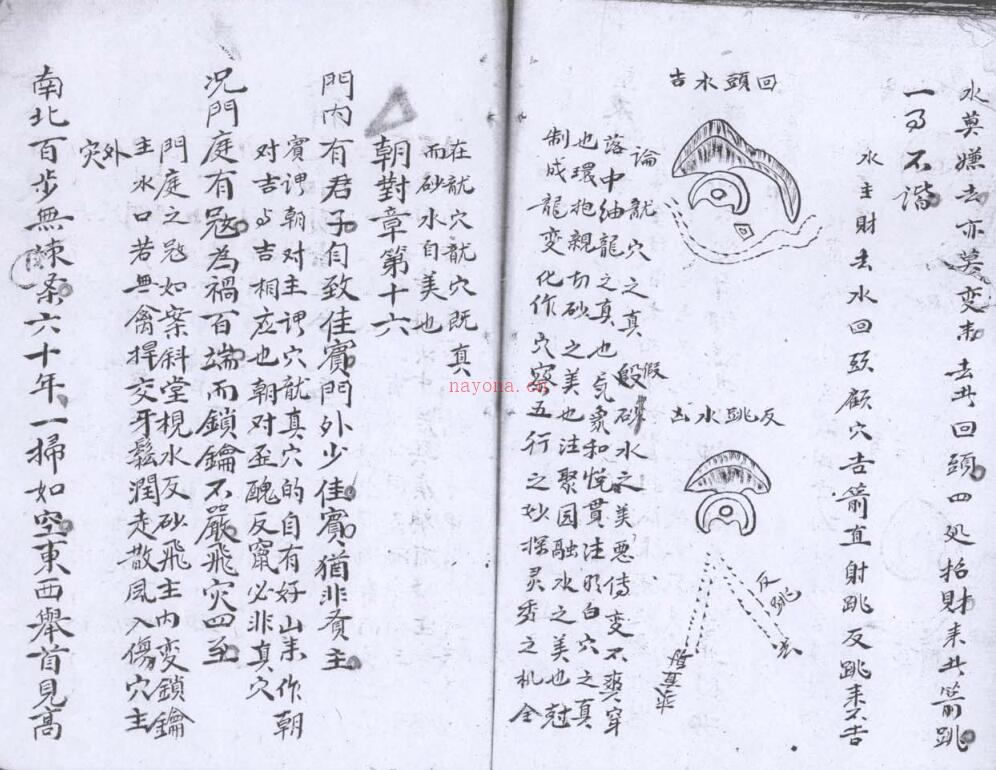 水莫嫌去亦莫变来去共回頭四処招財来共箭跳
一了不諧
水主財去水回頭顧穴吉箭直射跳反跳来不吉
回頭水吉
反跳水凶
反跳
去
来直箭
論龍穴之真假砂水之美悪傳变不爽穿
落中紬龍之真也気象和悦貫注明白穴之真
也環抱親切砂之美也注聚囬融水之美也尅
制成龍变化作穴察五行之妙探灵秀之机全
在龍穴龍穴既真
而砂水自美也
朝對章第十六
門内有君子自致佳賓門外少佳賓猶非賢主
賓謂朝对主謂穴龍真穴的自有好山来作朝
对吉与吉相应也朝对歪醜反竄必非真穴
况門庭有冦為禍百端而鎖鑰不嚴飛灾四至
門庭之冦如案斜堂梘水反砂飛主内变鎖鑰
主水口若無禽捍交牙鬆濶走散风入傷穴主
外灾
南北百步無棟桑六十年一掃如空東西舉首見高
nayona.cn